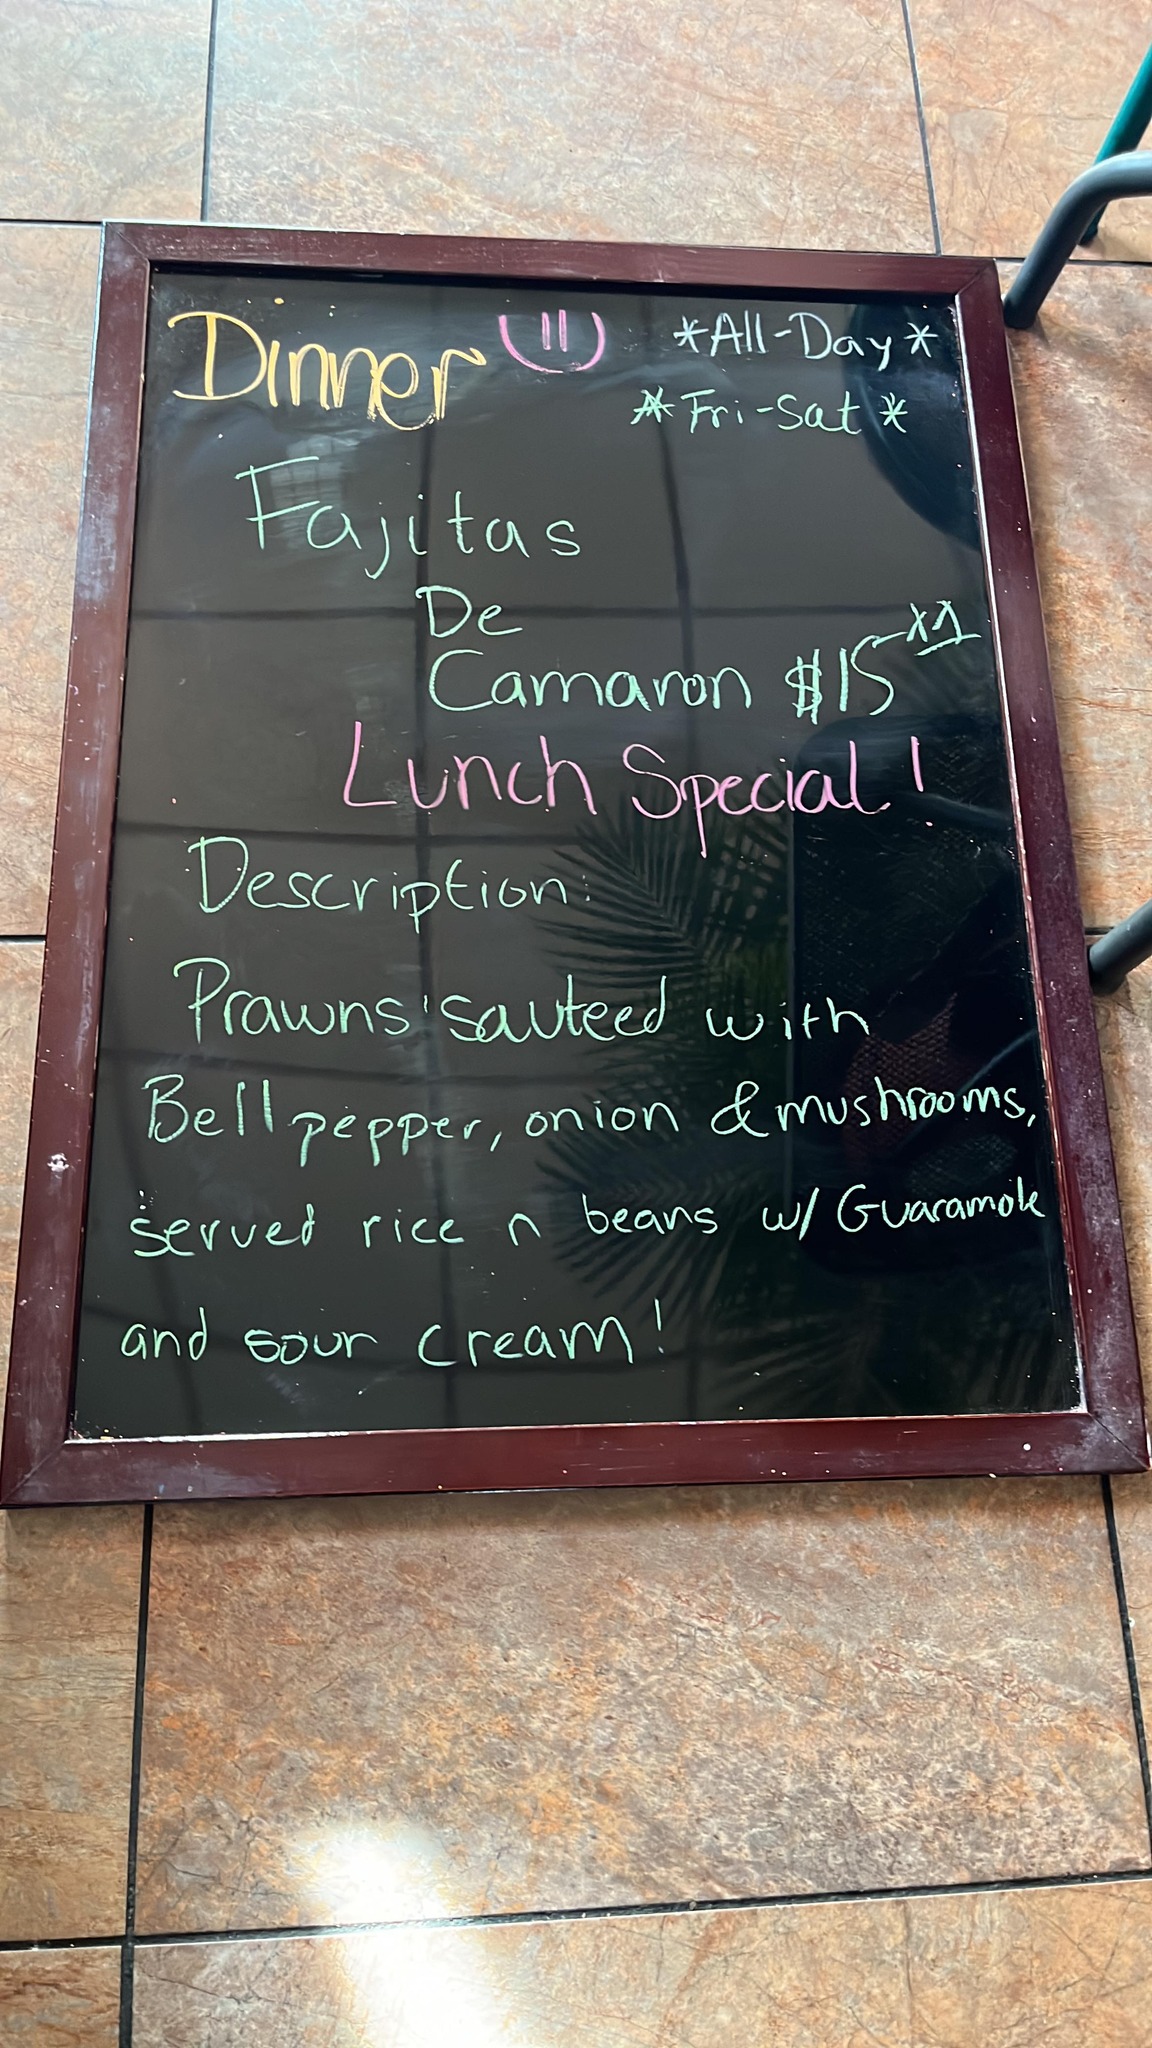 Dinner
*All-Day*
*Fri-Sat*
Fajitas
De
Camaron $15 x1
Lunch Special!
Description:
Prawns sauteed with
Bell pepper, onion & mushrooms,
served rice n beans w/ Guaramole
and sour cream!